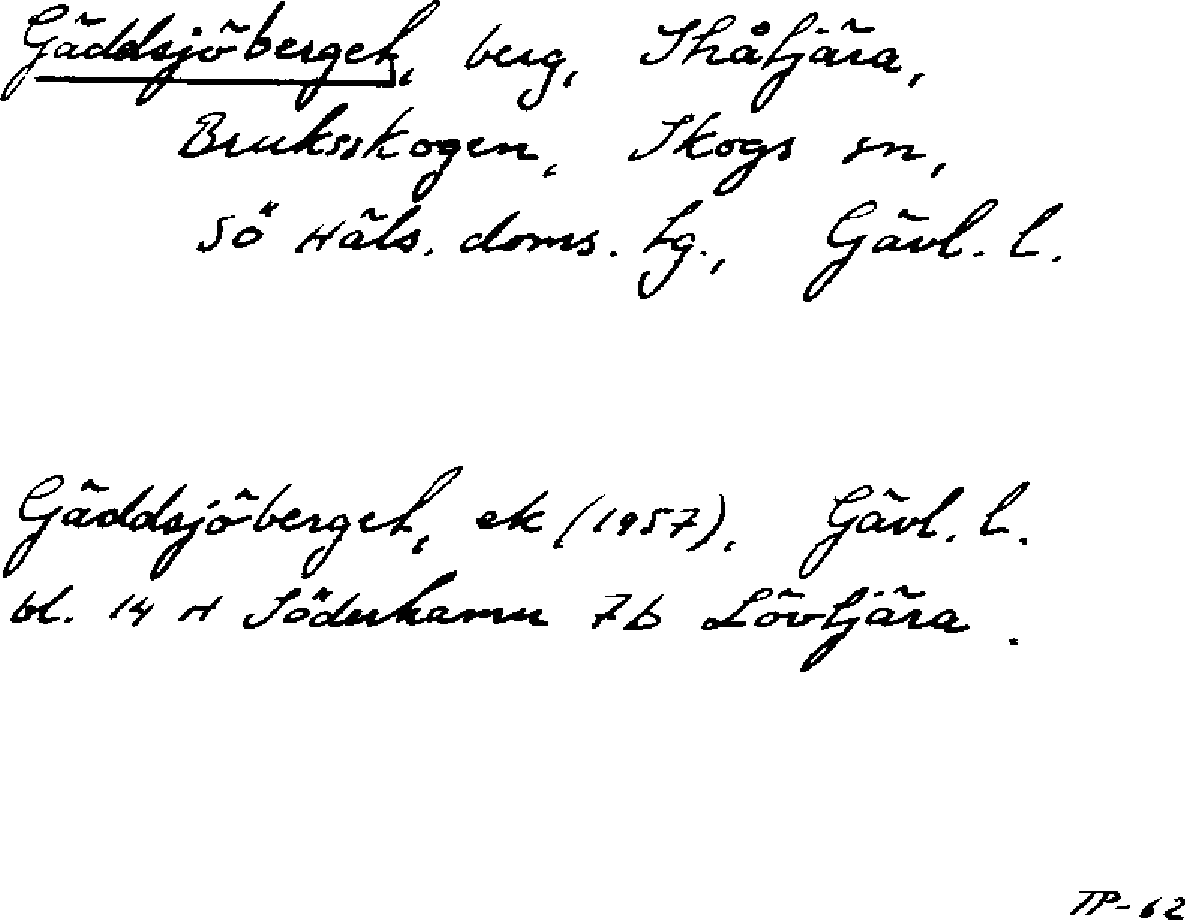 Gäddsjöberget, berg, Skåtjära,
Bruksskogen, Skogs sn,
Sö Häls. doms. tg., Gävl. l.
Gäddsjöberget, ek (1957), Gävl. l.
bl. 14 H Söderhamn 7b Lövtjära.
TP-62